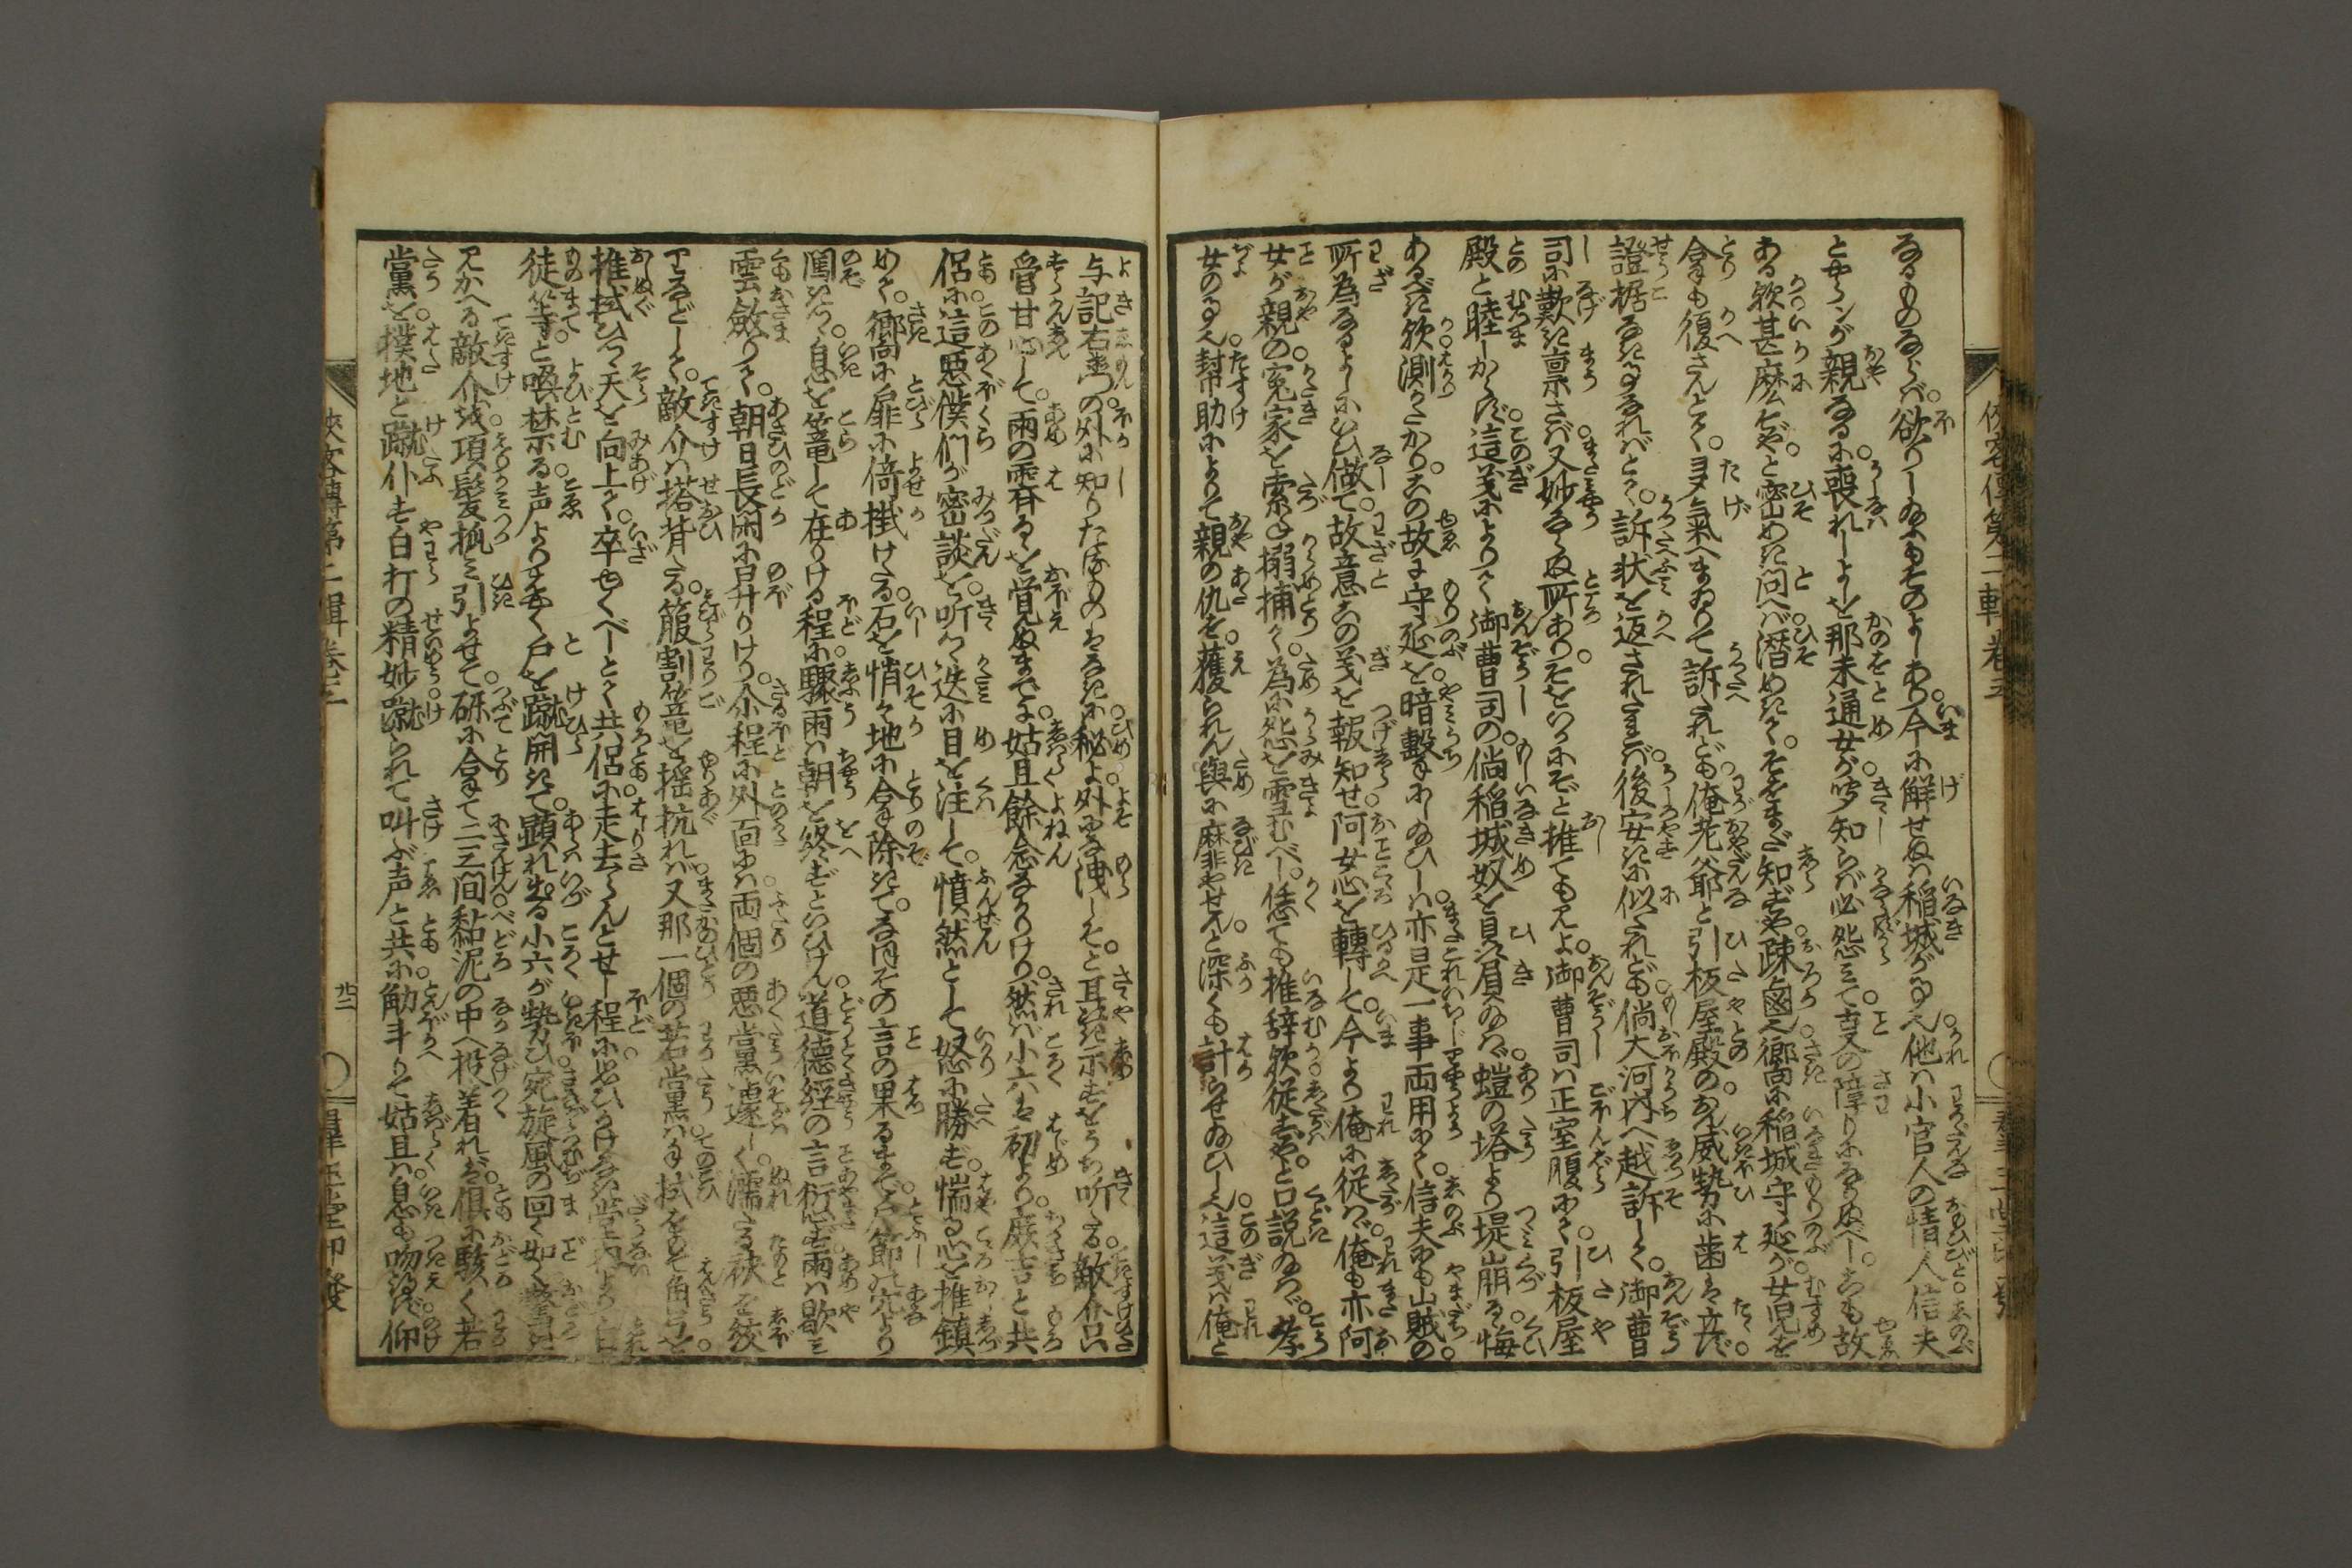 なるものならバ欲りしゐふもそのよしあり今に解せぬハ稲城が事他ハ小官人の情人信夫
とやらンが親なるに喪れしよしを那未通女が聞知らバ必怨みて夏の障りになりぬべしこも故
ある歟甚麽ぞやと密めき問ヘバ潜めきてそをまだ知ずや疎鹵し郷に稲城守延が女児を
拿も復さんとて猛氣へまゐりて訴されども俺老爺と引板屋殿のおん威勢に歯も立ず
證据なき事なれバとて訴状を返されたれバ後安きに似たれども倘大河内へ越訴して御曹
司に歎き禀さバ又妙ならぬ所ありそをいかにぞと推ても見よ御曹司ハ正室腹にて引板屋
殿と睦しからず這義によりて御曹司の倘稲城奴を贔屓ゐはゞ螘の塔より堤崩るゝ悔
あるべき歟測りかたかりこの故に守延を暗撃にしゐひしハ亦是一事両用にて信夫にも山賊の
所為なるよしにいひ做て故意この義を報知せ阿女心を轉して今より俺に従はゞ俺も亦阿
女が親の寃家を索ね搦捕て為に怨を雪むべし恁ても推辞歟従ふやと口説ゐはゞ孝
女の事え幇助によりて親の仇を獲られん與に麻非せんと深くも計らせゐひしへ這義ハ俺と
与記右衛門の外に知りたるものはなきに秘よ外にな洩しそと耳語示すをうち听る敵介ハ
管甘心して雨の霽るゝを覚ぬまでに姑且餘念なかりけり然バ小六ハ初より蕨吉と共
侶に這悪僕們が密談を听つ迭に目を注して憤然として怒に勝ず惴る心を推鎮
めて郷に扉に倚掛けたる石を悄々地に拿除きてな開その言の果るまで戸節の穴より
闖きつゝ息を篭して在りける程に驟雨ハ朝を終ずといひけん道徳經の言衍ず雨ハ歇み
雲斂りて朝日長閑に昇りけり介程に外面にハ両個の悪黨遽しく濡たる袂を絞
下などして敵介ハ搭背たる箙割篭を揺抗れハ又那一個の若黨ハ手拭をもて角二を
推拭ひつゝ天を向上て卒ゆくべしとて共侶に走去らんとせし程に思ひかけなき堂内より白
徒等と喚禁る声よりも疾く戸を蹴開きて顕れ出る小六が勢ひ宛旋風の回く如く驀直に
見かへる敵介が項髪抓み引よせて礫に拿て二三間黏泥の中へ投着れバ倶に駭く若
黨を撲地と蹴仆す白打の精妙蹴られて叫ぶ声と共に觔斗りて姑且ハ息も吻得ず仰
侠客傳第二輯巻三
侠客傳第二輯巻三
廿二
群玉堂印發